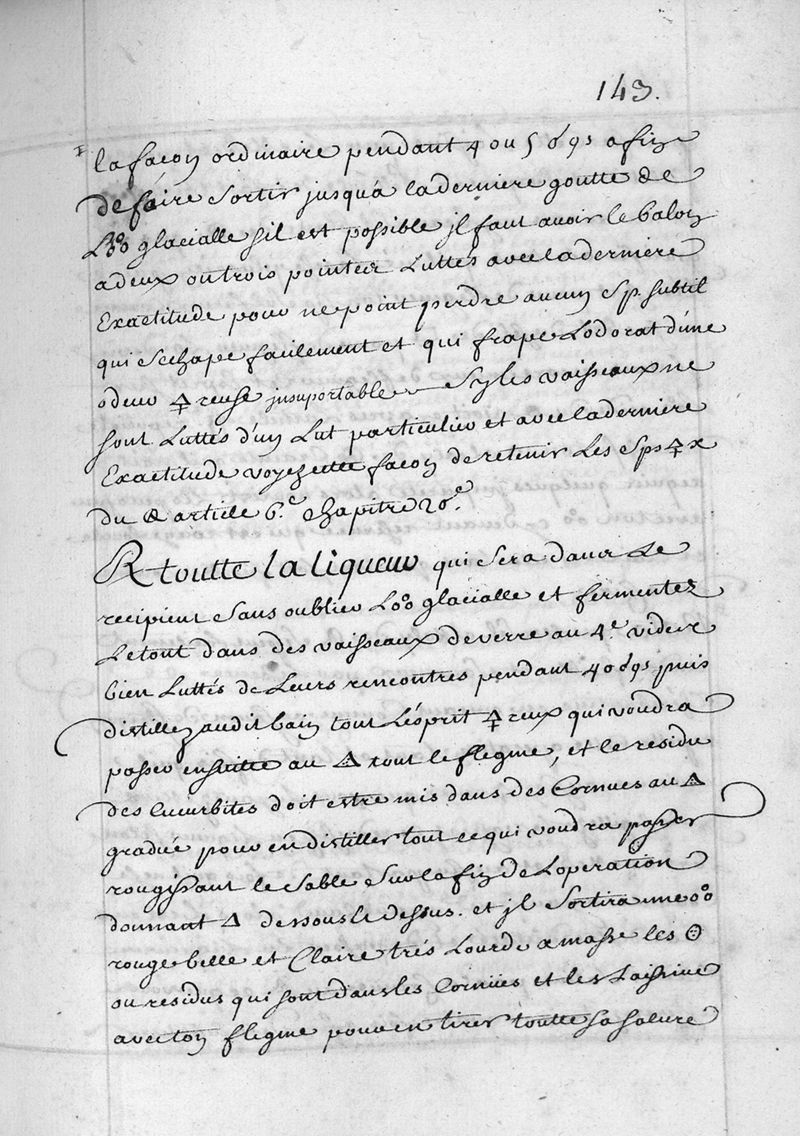 143.
la façon ordinaire pendant 4 ou 5 afin
de faire sortir jusqua la derniere goutte de
L glacialle sil est possible jl faut avoir le balon
a deux ou trois pointes Luttés avec la derniere
Exactitude pour ne point perdre aucun sp. subtil
qui sechape facilement et qui frape Lodorat d'une
odeur 🜍reuse jnsuportable sy les vaisseaux ne
sont Luttés d'un Lut particulier et avec la derniere
Exactitude voyez cette façon de retenir Les Sps 🜍x
du article 6.e chapitre 20.e
℞ toutte la liqueur qui sera dans Le
recipient sans oublier L glacialle et fermentez
Le tout dans des vaisseaux de verre au 4.e vides
bien Luttés de Leurs rencontres pendant 40 puis
distillez audit bain tout Lésprit 🜍reux qui voudra
passer ensuitte au tout le flegme, et le residu
des Cucurbites doit estre mis dans des Cornues au
gradué pour en distiller tout ce qui voudra passer
rougissant le sable sur la fin de Loperation
donnant 🜂 dessous le dessus. et jl sortira une
rouge belle et Claire trés Lourde amasse les
ou residus qui sont dans les Cornües et les Laissive
avec ton flegme pour en tirer toutte sa salure